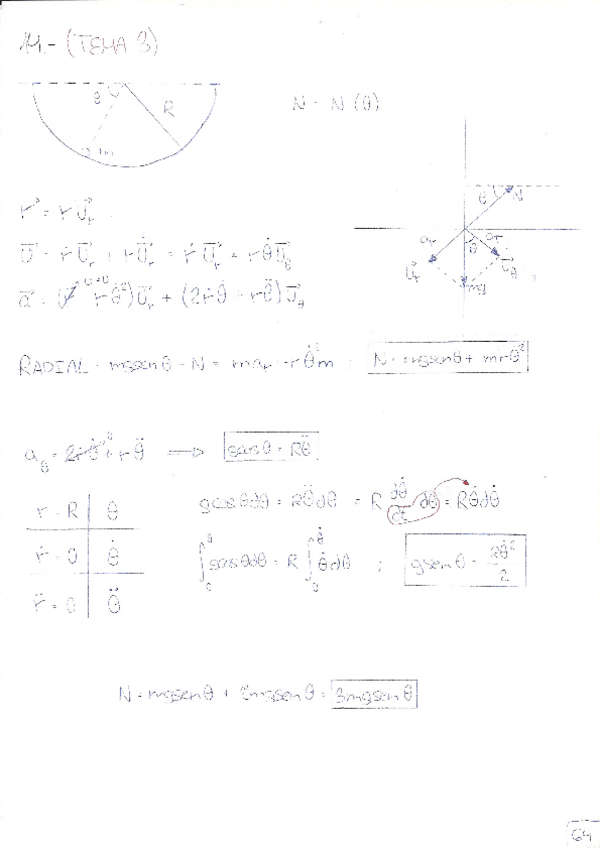 14.- (TEMA 3)
θ
R
m
N = N(θ)
θ N
a_r a_T
θ
u⃗_r u⃗_θ
mg
r⃗ = r u⃗_r
v⃗ = ṙ u⃗_r + r u⃗̇_r = ṙ u⃗_r + r θ̇ u⃗_θ
RADIAL: mg sen θ - N = m a_r = - r θ̇² m ; N = mg sen θ + m r θ̇²
a_θ = 2ṙθ̇ + r θ̈ ⟹ g cos θ = R θ̈
r = R θ
ṙ = 0 θ̇
r̈ = 0 θ̈
g cos θ dθ = R θ̈ dθ = R dθ̇/dt dθ = R θ̇ dθ̇
∫₀^θ g cos θ dθ = R ∫₀^θ̇ θ̇ dθ̇ ; g sen θ = Rθ̇²/2
N = mg sen θ + 2mg sen θ = 3mg sen θ
64